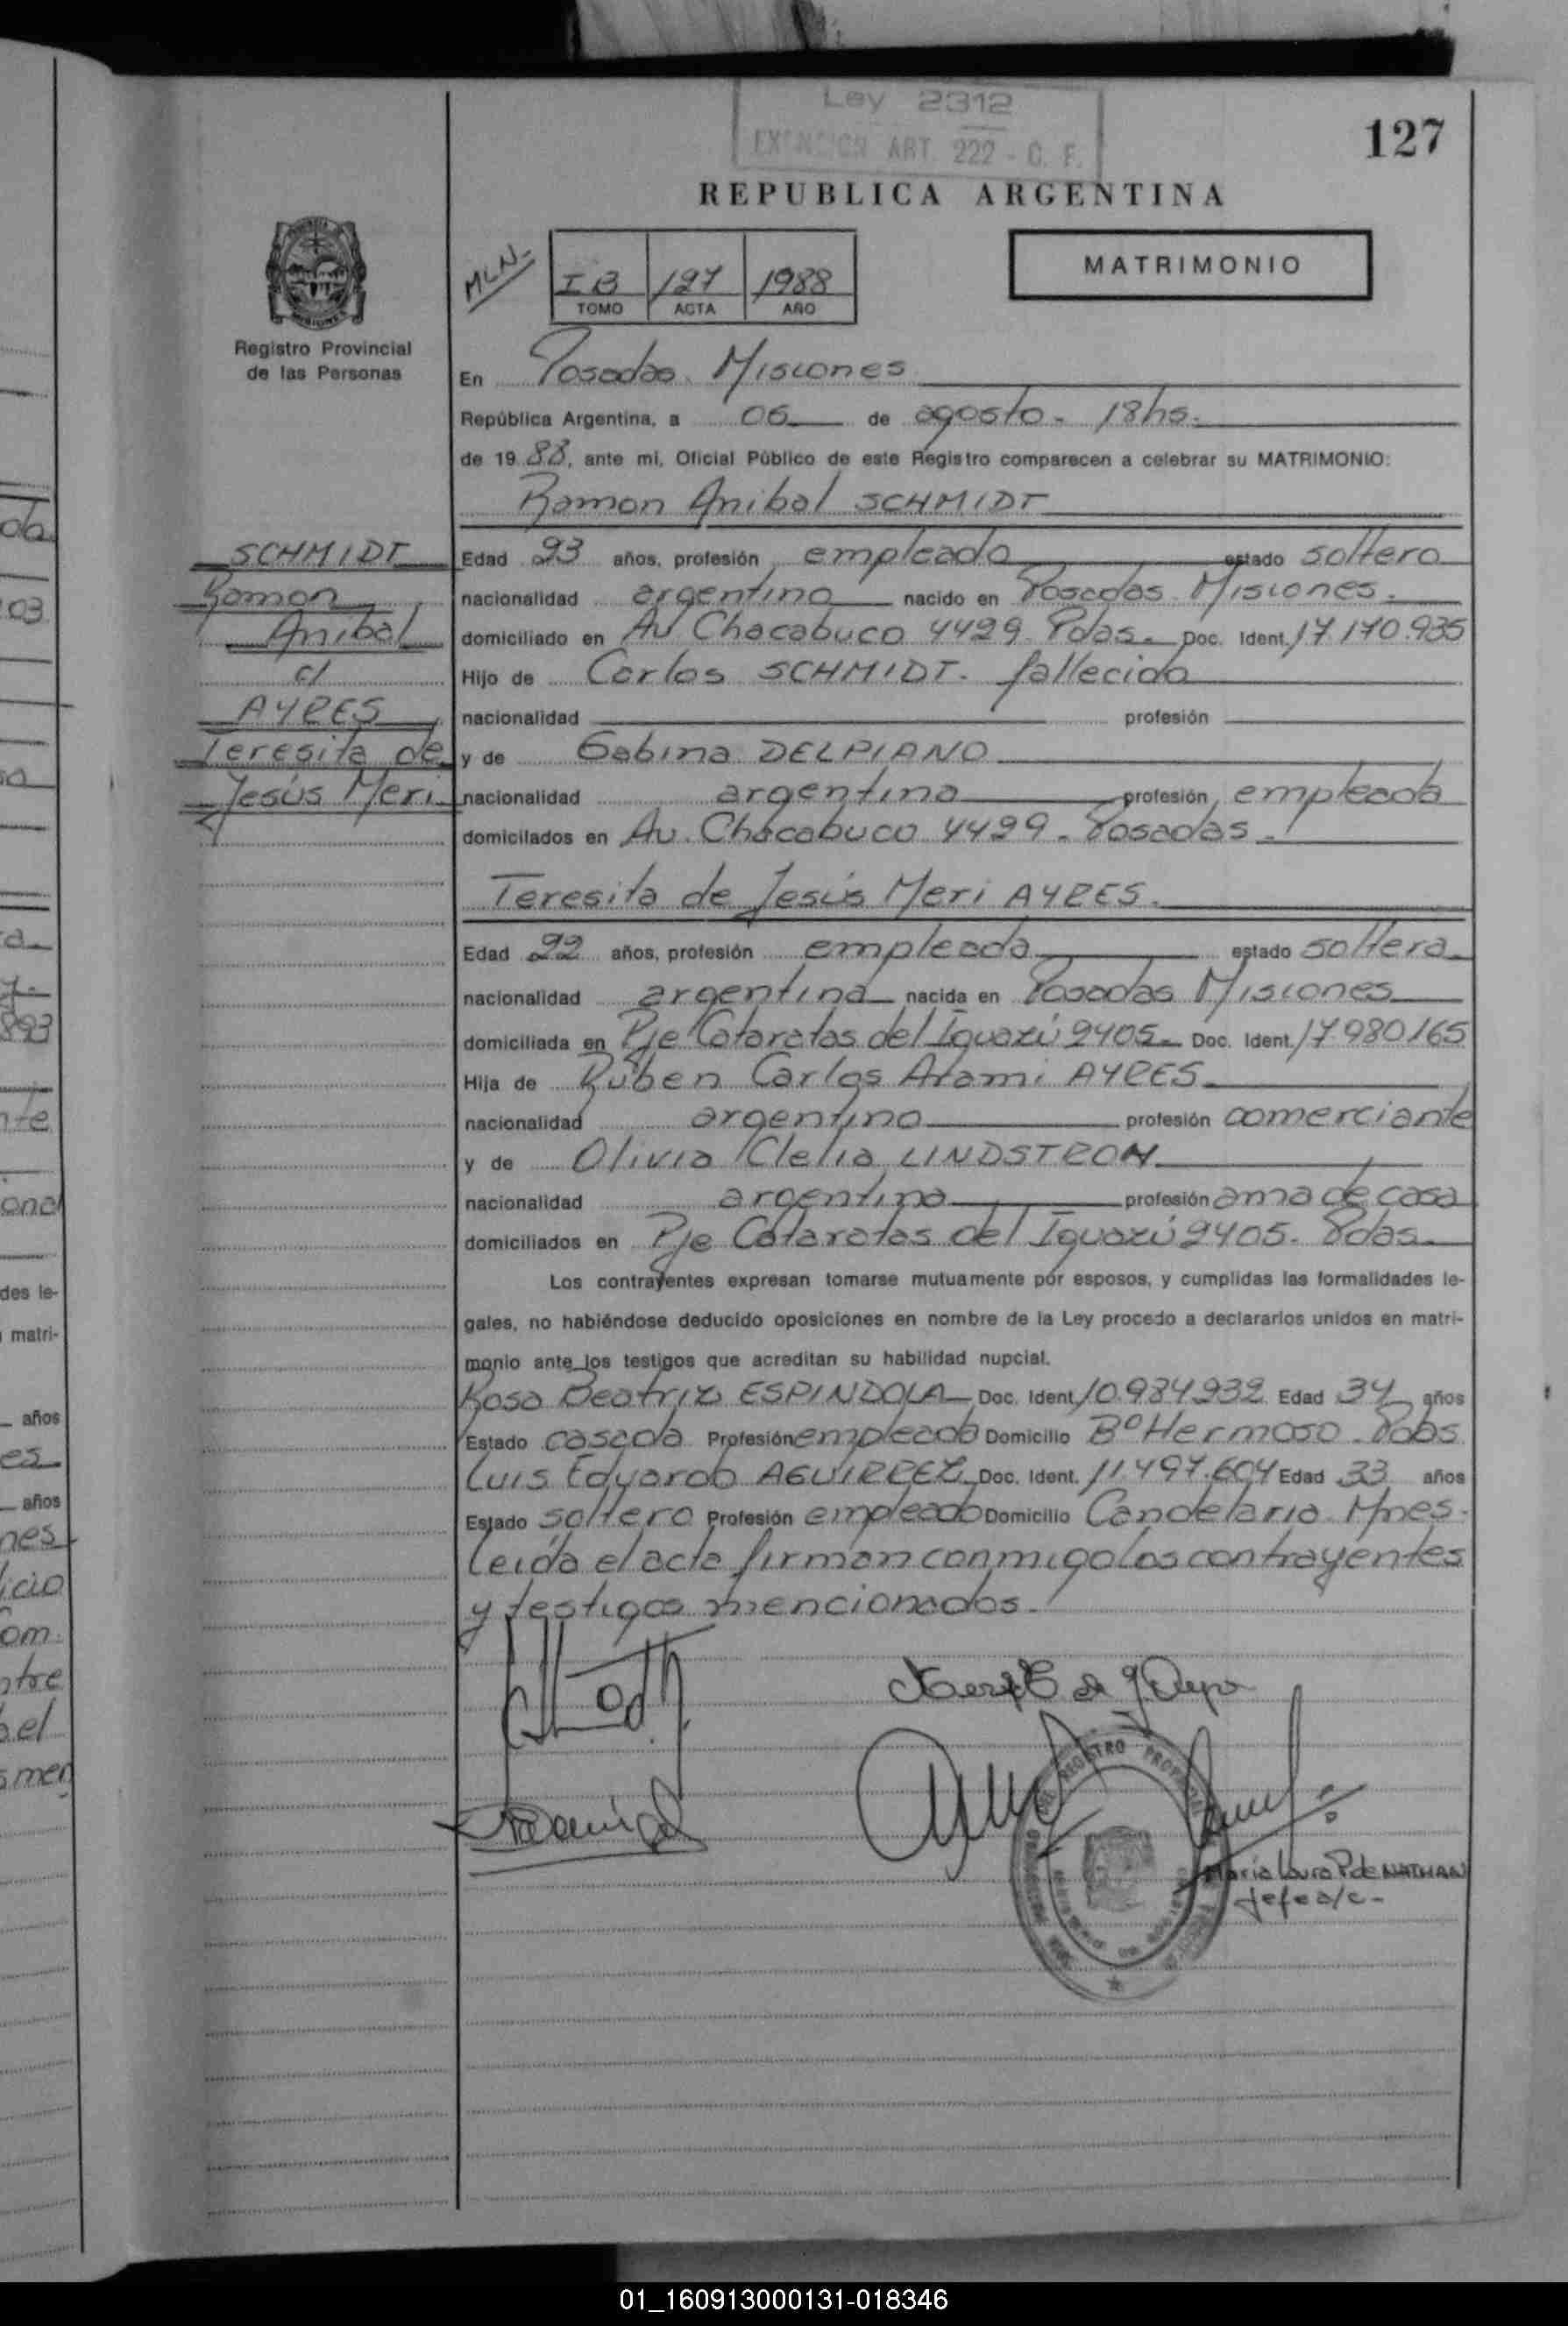 Ley 2312
EXENCION ART. 222 - C. F.
127
REPUBLICA ARGENTINA
MLN-
I B 127 1988
TOMO ACTA AÑO
MATRIMONIO
Registro Provincial
de las Personas
En Posadas Misiones
República Argentina, a 06 de agosto - 18hs.
de 19 88, ante mi, Oficial Público de este Registro comparecen a celebrar su MATRIMONIO:
Ramon Anibal SCHMIDT
SCHMIDT
Ramon
Anibal
c/
AYRES
Teresita de
Jesús Meri
Edad 23 años, profesión empleado estado soltero
nacionalidad argentino nacido en Posadas Misiones.
domiciliado en Av Chacabuco 4429 Pdas. Doc. Ident. 17.170.935
Hijo de Carlos SCHMIDT. fallecido
nacionalidad profesión
y de Gabina DELPIANO
nacionalidad argentina profesión empleada
domicilados en Av. Chacabuco 4429 - Posadas -
Teresita de Jesús Meri AYRES.
Edad 22 años, profesión empleada estado soltera
nacionalidad argentina nacida en Posadas Misiones
domiciliada en Pje Cataratas del Iguazú 2405 Doc. Ident. 17.980165
Hija de Rúben Carlos Arami AYRES
nacionalidad argentino profesión comerciante
y de Olivia Clelia LINDSTROM
nacionalidad argentina profesión ama de casa
domiciliados en Pje Cataratas del Iguazú 2405. Pdas.
Los contrayentes expresan tomarse mutuamente por esposos, y cumplidas las formalidades le-
gales, no habiéndose deducido oposiciones en nombre de la Ley procedo a declararlos unidos en matri-
monio ante los testigos que acreditan su habilidad nupcial.
Rosa Beatriz ESPINDOLA Doc. Ident. 10.984932 Edad 34 años
Estado casada Profesión empleada Domicilio Bº Hermoso - Pdas
Luis Eduardo AGUIRREZ Doc. Ident. 11.497.604 Edad 33 años
Estado soltero Profesión empleado Domicilio Candelaria Mnes.
Leída el acta firman conmigo los contrayentes
y testigos mencionados.
Maria Laura P de NATHAN
Jefe a/c -
01_160913000131-018346